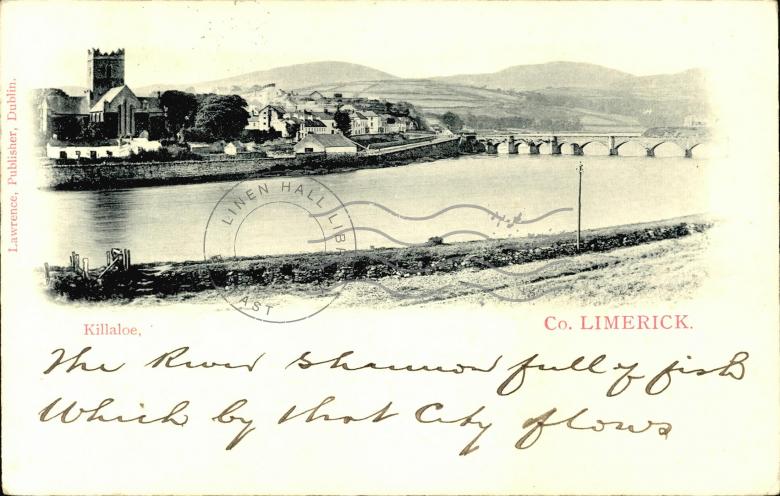 Lawrence, Publisher, Dublin.
LINEN HALL LIB
AST
Killaloe,
Co. LIMERICK.
The River Shannon full of fish
Which by that City flows